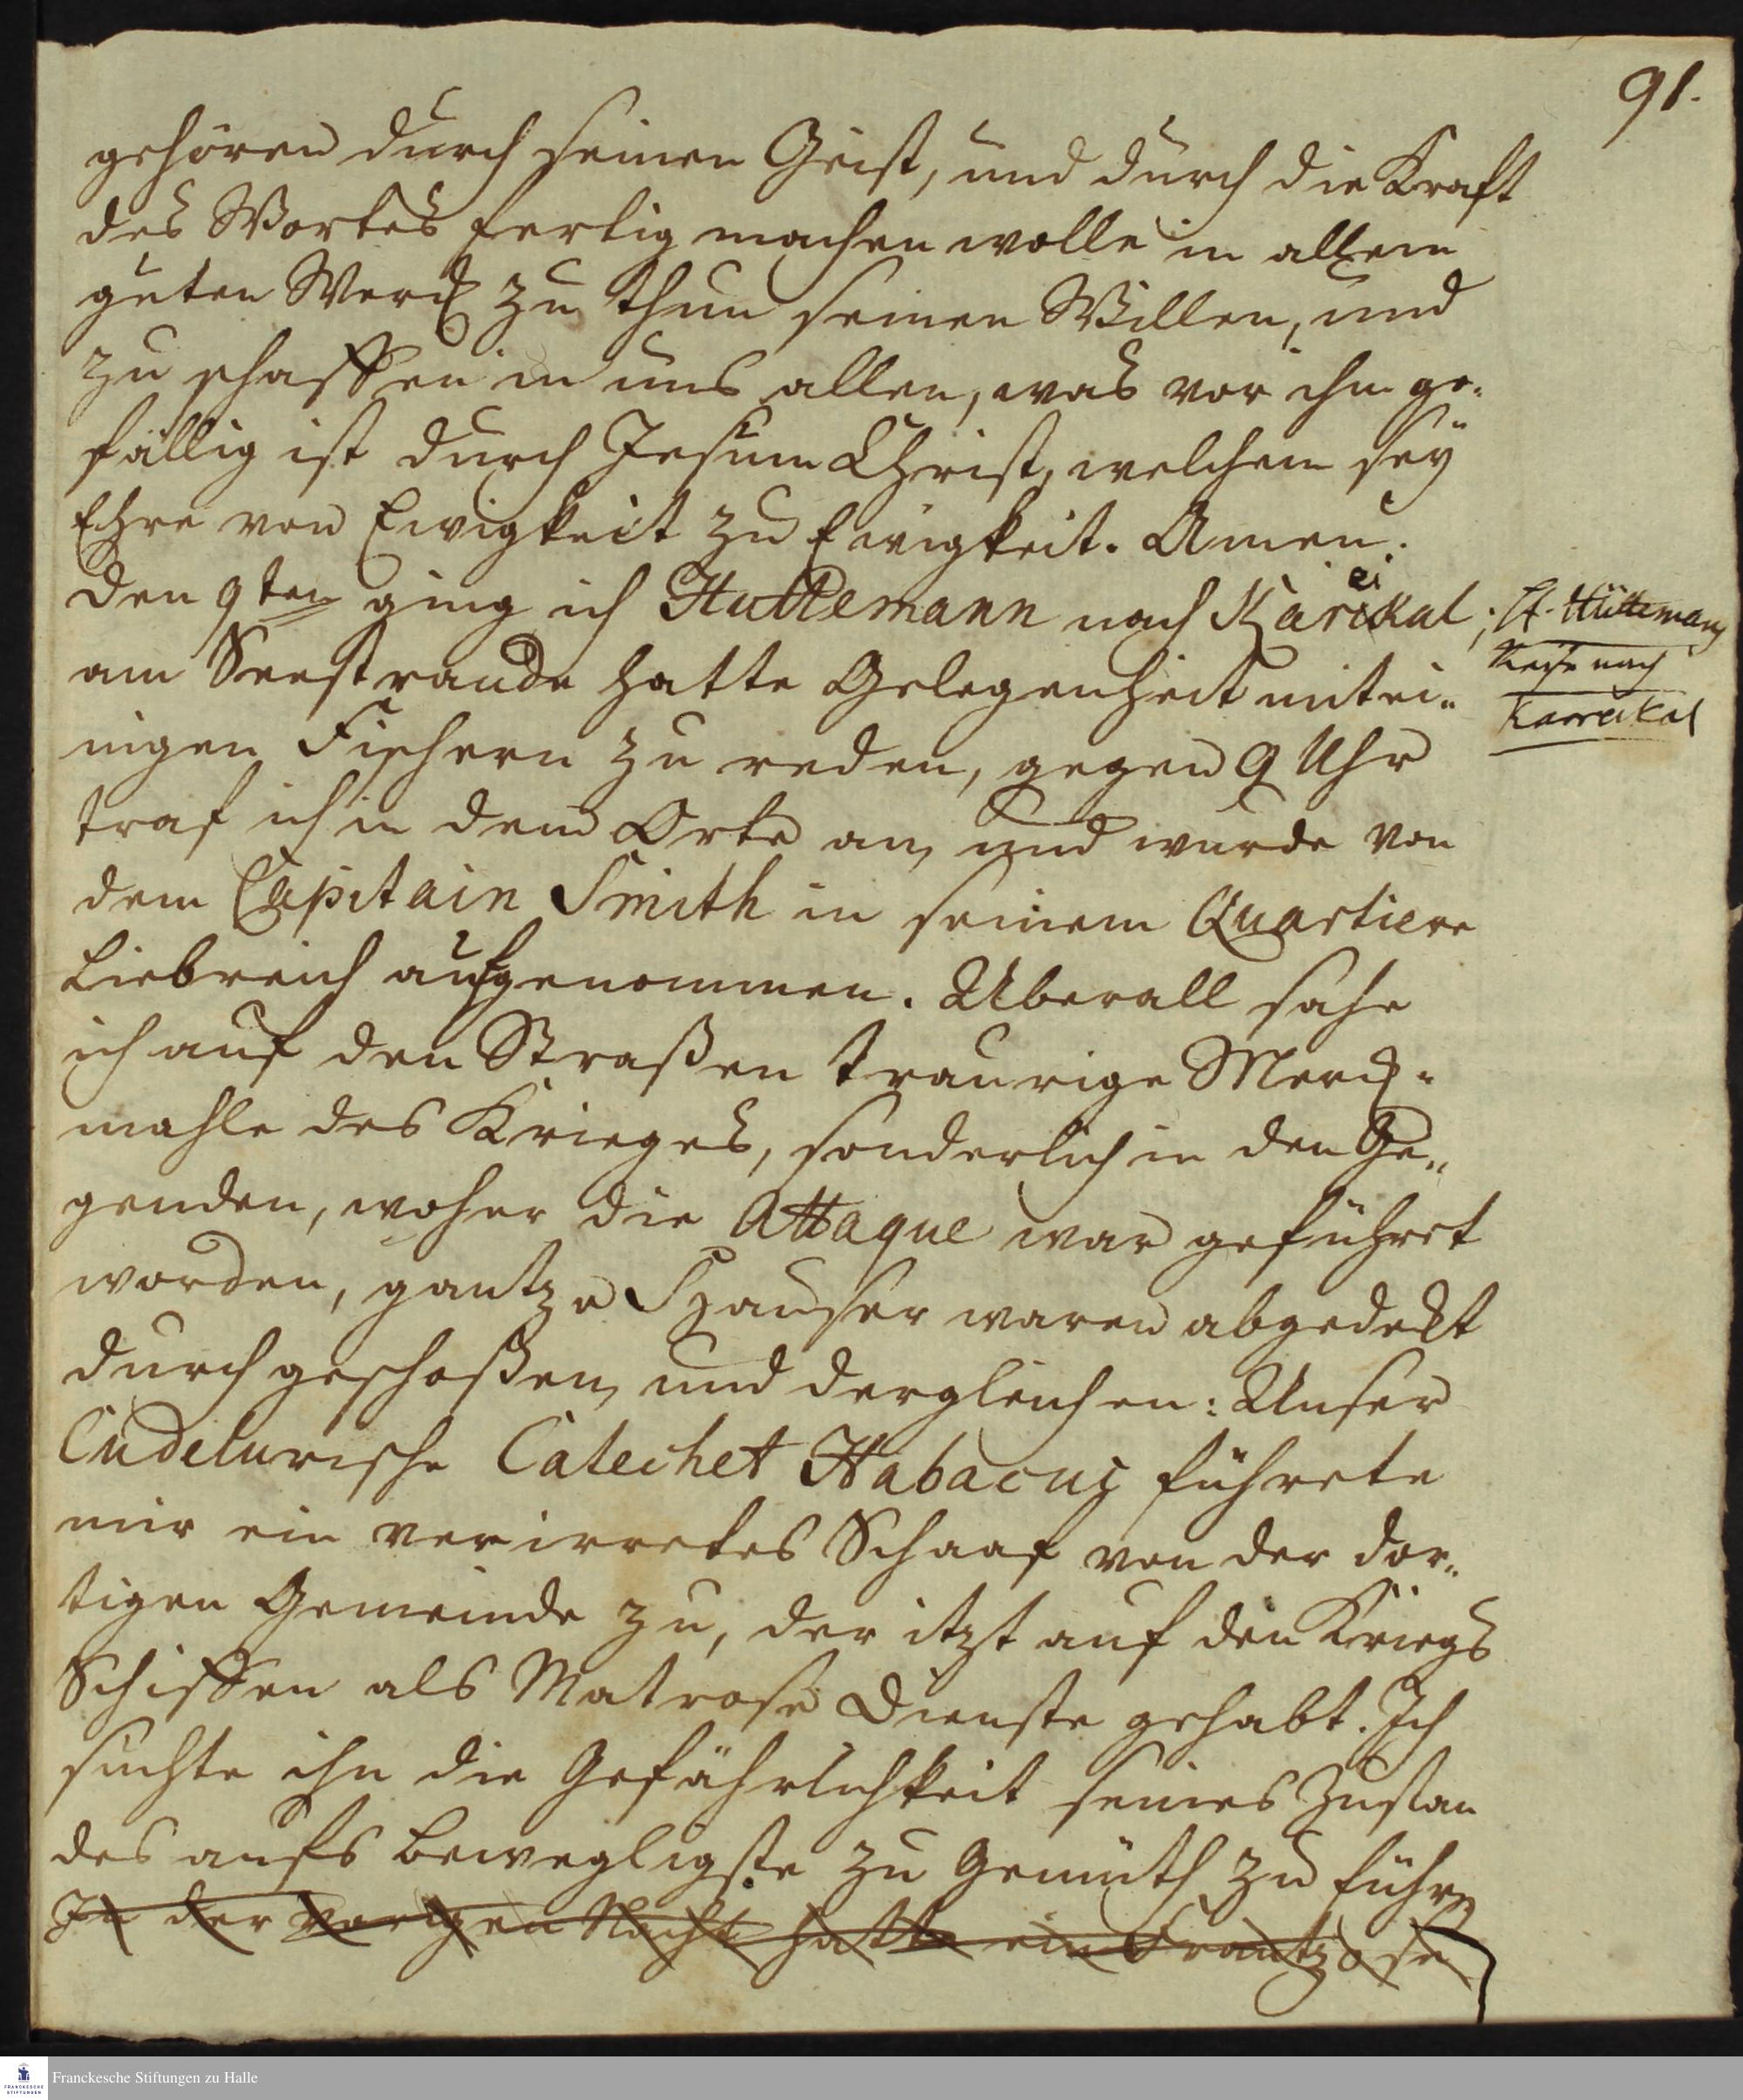 91.
gehören durch seinen Geist, und durch die Kraft
des Wortes fertig machen wolle in allem
guten Werck zu thun seinen Willen, und
zu schaffen in uns allen, was vor ihm ge-
fällig ist durch Jesum Christ, welchem sey
Ehre von Ewigkeit zu Ewigkeit. Amen.
den 9ten ging ich Huttemann nach Kareikal;
H. Hüttemans
Reise nach
Karreikal
am Seestrande hatte Gelegenheit mit ei-
nigen Fischern zu reden, gegen 9 Uhr
traf ich in dem Orte an, und wurde von
dem Capitain Smith in seinem Quartiere
liebreich aufgenommen. Uberall sahe
ich auf den Straßen traurige Merck-
mahle des Krieges, sonderlich in den Ge-
genden, woher die Attaque war geführet
worden, gantze Häuser waren abgedekt
durchgeschoßen, und dergleichen: Unser
Cudelurische Catechet Habacuc führete
mir ein verirretes Schaaf von der dor-
tigen Gemeinde zu, der itzt auf den Kriegs
Schiffen als Matrose Dienste gehabt. Ich
suchte ihn die Gefährlichkeit seines Zustan
des aufs bewegligste zu Gemüth zu führen
In der vorigen Nacht hatte ein Frantzose
Franckesche Stiftungen zu Halle
FRANCKESCHE
STIFTUNGEN